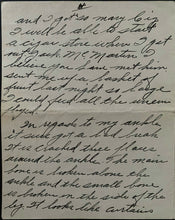 and I got so many Cig
I would be able to start
a cigar store when I get
out. Jack McMartin I
believe you know him
sent me up a basket of
fruit last night so large
I could feed all the
In regards to my ankle
it sure got a bad break
It is cracked three places
around the ankle. The main
bone is broken above the
ankle and the small bone
is broken on the side of the
leg. It looks like curtains